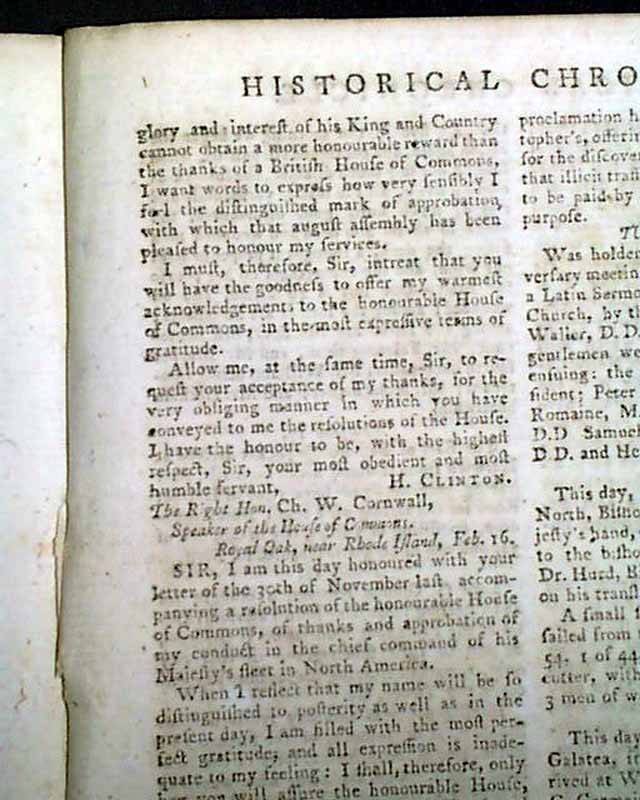 HISTORICAL CHRO
glory and interest of his King and Country
cannot obtain a more honourable reward than
the thanks of a British House of Commons,
I want words to expreſs how very ſenſibly I
feel the diſtinguiſhed mark of approbation,
with which that auguſt aſſembly has been
pleaſed to honour my ſervices.
I muſt, therefore, Sir, intreat that you
will have the goodneſs to offer my warmeſt
acknowledgements to the honourable Houſe
of Commons, in the moſt expreſſive terms of
gratitude.
Allow me, at the ſame time, Sir, to re-
queſt your acceptance of my thanks, for the
very obliging manner in which you have
conveyed to me the reſolutions of the Houſe.
I have the honour to be, with the higheſt
reſpect, Sir, your moſt obedient and moſt
humble ſervant, H. CLINTON.
The Right Hon. Ch. W. Cornwall,
Speaker of the Houſe of Commons.
Royal Oak, near Rhode Iſland, Feb. 16.
SIR, I am this day honoured with your
letter of the 30th of November laſt, accom-
panying a reſolution of the honourable Houſe
of Commons, of thanks and approbation of
my conduct in the chief command of his
Majeſty's fleet in North America.
When I reflect that my name will be ſo
diſtinguiſhed to poſterity as well as in the
preſent day, I am filled with the moſt per-
fect gratitude, and all expreſſion is inade-
quate to my feeling: I ſhall, therefore, only
you will aſſure the honourable Houſe,
proclamation h
topher's, offerin
for the diſcover
that illicit traff
to be paid by
purpoſe.
Was holden
verſary meetin
a Latin Sermo
Church, by th
Waller, D. D.
gentlemen we
enſuing: the
ſident; Peter
Romaine, M.
D.D Samuel
D.D. and He
This day,
North, Biſho
jeſty's hand,
to the biſho
Dr. Hurd, B
on his tranſl
A ſmall f
ſailed from
54. 1 of 44
cutter, with
3 men of w
This day
Galatea, it
rived at W